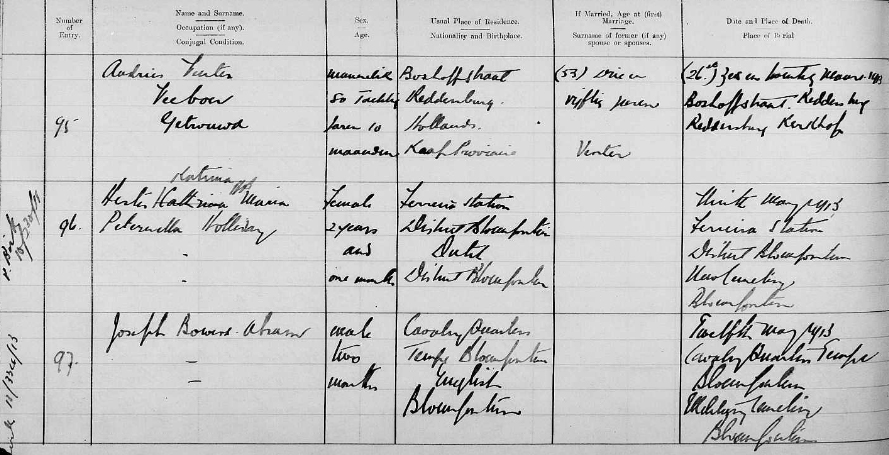 Number of Entry.
Name and Surname.
Occupation (if any).
Conjugal Condition.
Sex.
Age.
Usual Place of Residence.
Nationality and Birthplace.
If Married, Age at (first) Marriage.
Surname of former (if any) spouse or spouses.
Date and Place of Death.
Place of Burial
95
Andries Venter
Veeboer
Getrouwd
80 Tachtig
Jaren 10
maanden
Boshoffstraat
Reddersburg.
Hollands.
Kaap Provincie
(53) Drie en
vijftig jaren
Venter
(26
Boshoffstraat. Reddersburg
Reddersburg Kerkhof
96.
Katrina
Hester Maria
Petronella Holliday
Female
2 years
and
one month
Ferreira Station
District Bloemfontein
Dutch
District Bloemfontein
Ninth May 1913
Ferreira Station
District Bloemfontein
New Cemetery
Bloemfontein
97.
Joseph Bowers Abram
male
two
months
Cavalry Quarters
Tempe Bloemfontein
English
Bloemfontein
Twelfth May 1913
Cavalry Quarters Tempe
Bloemfontein
Military Cemetery
Bloemfontein